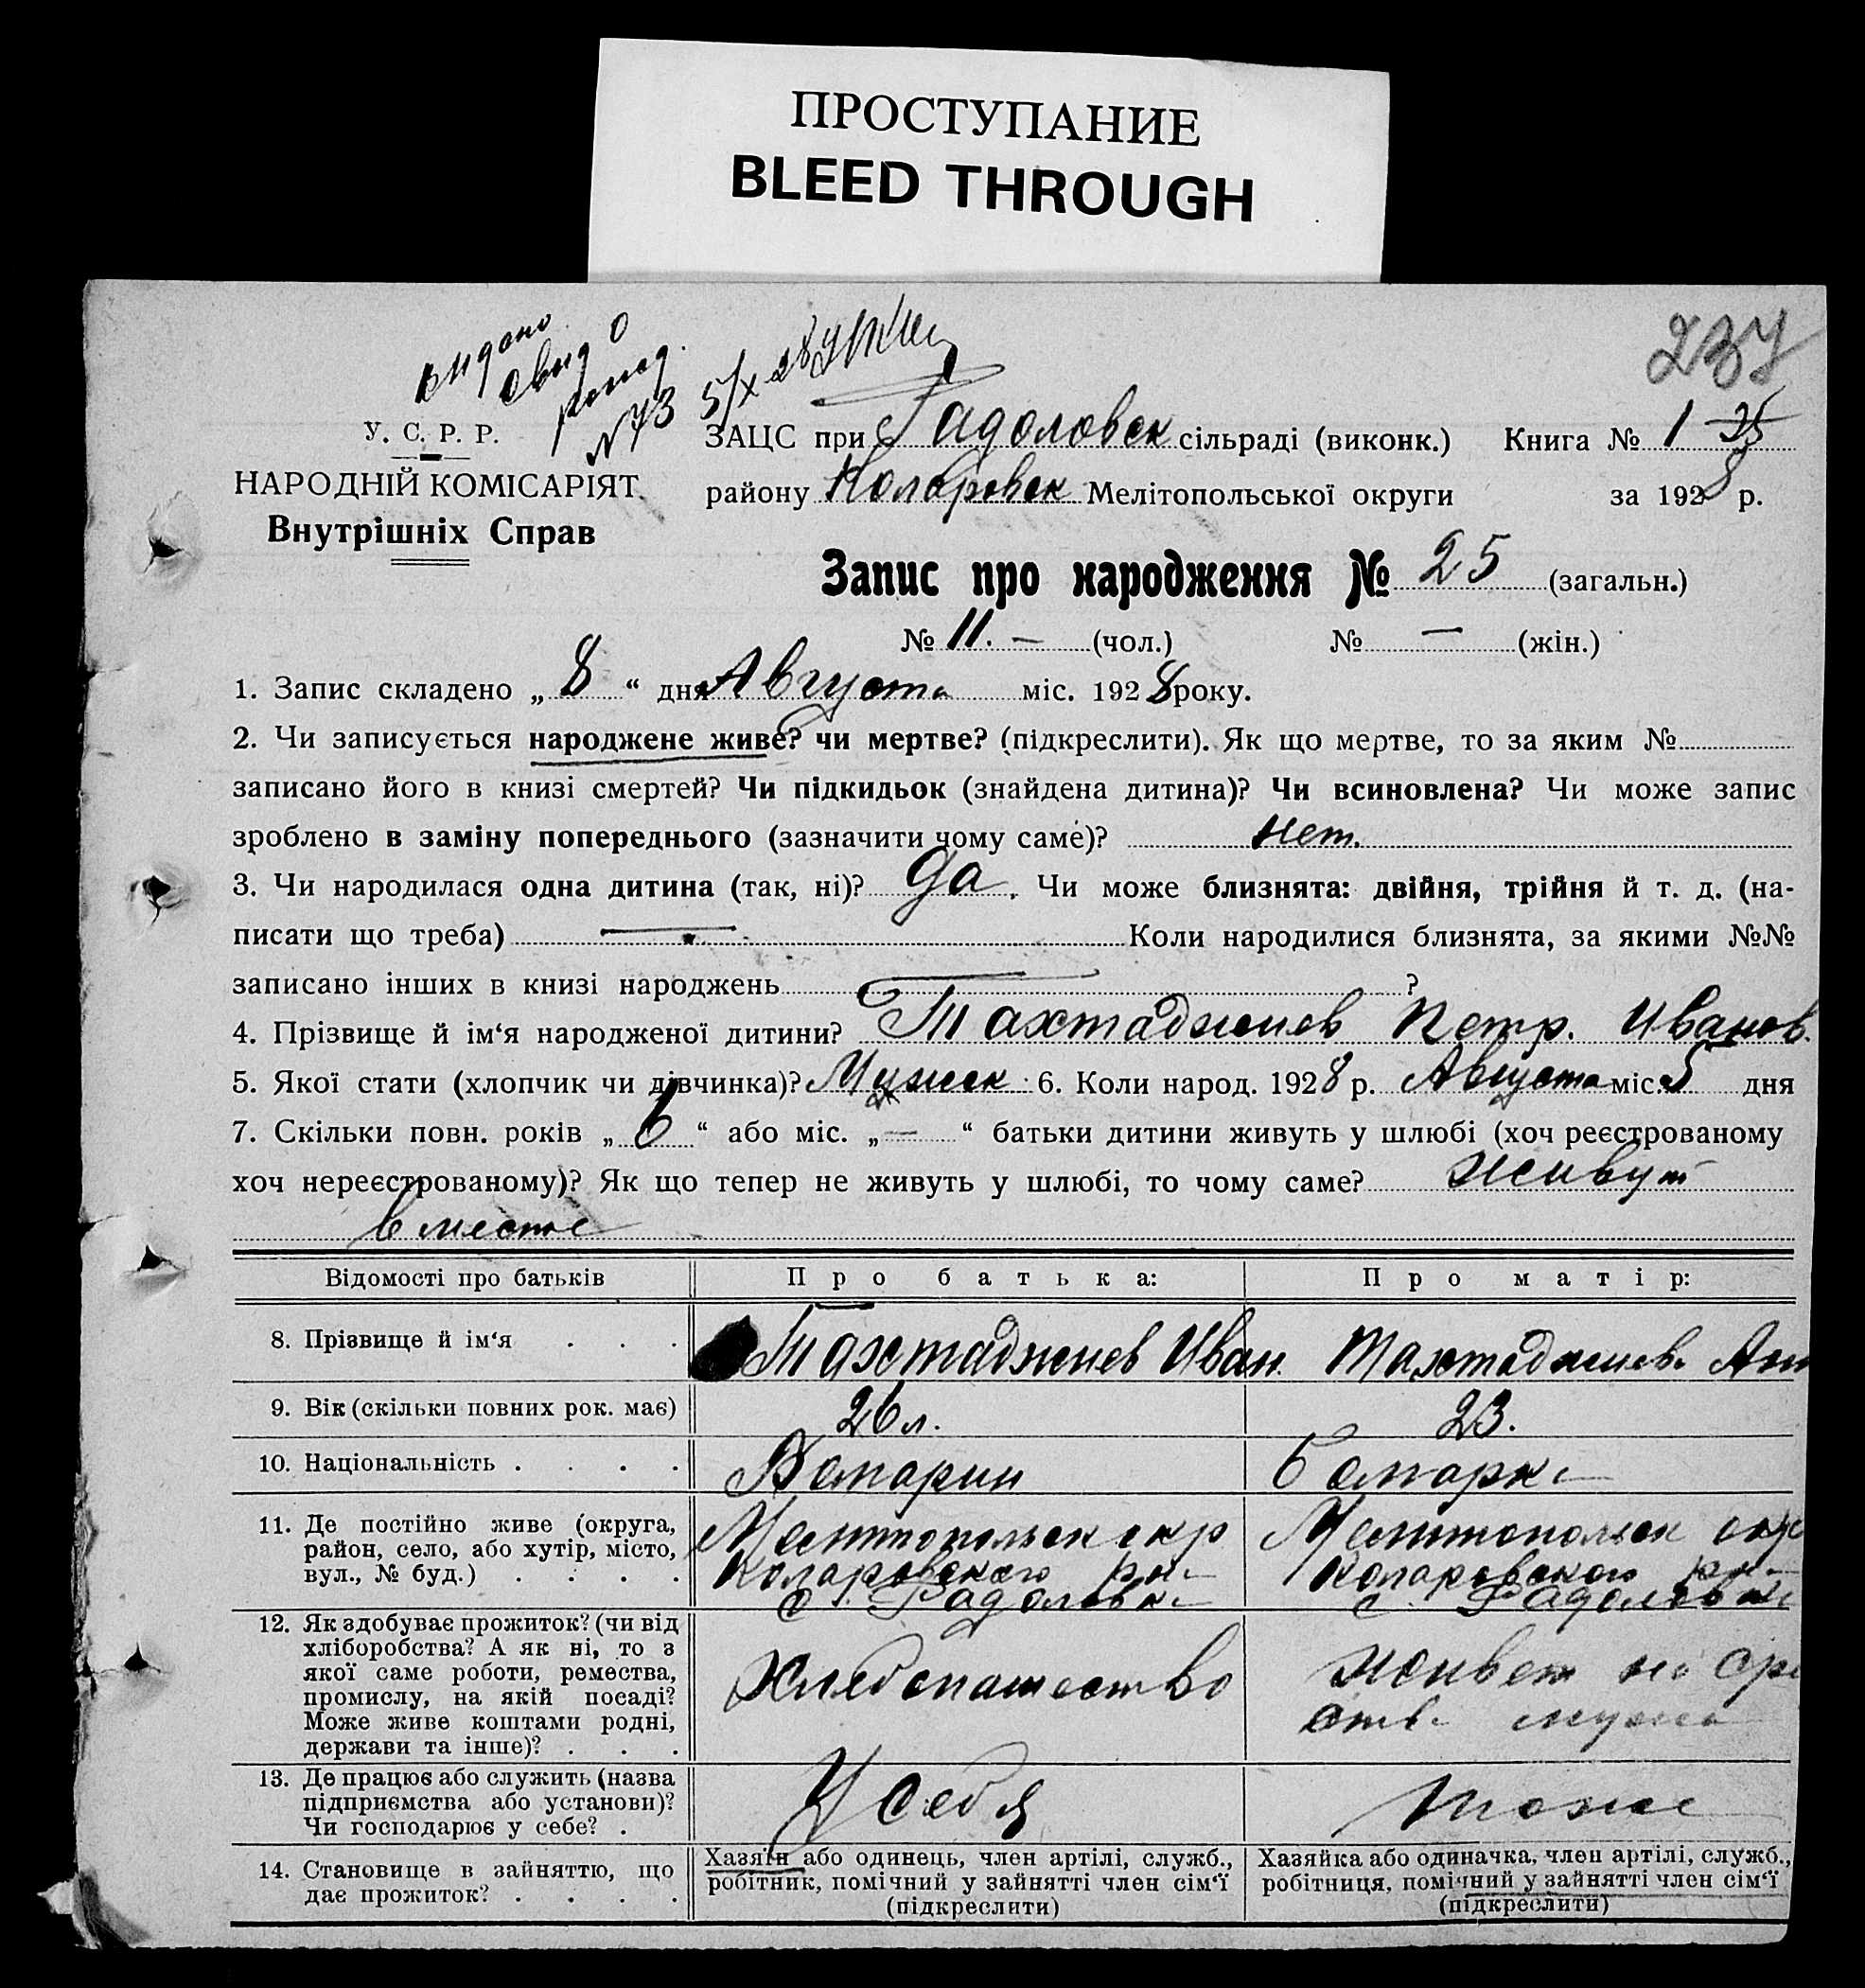 ПРОСТУПАНИЕ
BLEED THROUGH
237
видано
свид о
рожд.
N 73 5/X-28
У. С. Р. Р.
НАРОДНІЙ КОМІСАРІЯТ
Внутрішніх Справ
ЗАЦС при Радоловск сільраді (виконк.) Книга № 1
району Коларовск Мелітопольської округи за 1928 р.
Запис про народження № 25 (загальн.)
№ 11. — (чол.) № — (жін.)
1. Запис складено „ 8 “ дня Августа міс. 1928 року.
2. Чи записується народжене живе? чи мертве? (підкреслити). Як що мертве, то за яким №
записано його в книзі смертей? Чи підкидьок (знайдена дитина)? Чи всиновлена? Чи може запис
зроблено в заміну попереднього (зазначити чому саме)? нет.
3. Чи народилася одна дитина (так, ні)? да. Чи може близнята: двійня, трійня й т. д. (на-
писати що треба) — Коли народилися близнята, за якими №№
записано інших в книзі народжень ?
4. Прізвище й ім‘я народженої дитини? Тахтаджиев Петр. Иванов.
5. Якої стати (хлопчик чи дівчинка)? Мужск 6. Коли народ. 1928 р. Августа міс. 5 дня
7. Скільки повн. років „ 6 “ або міс. „ — “ батьки дитини живуть у шлюбі (хоч реєстрованому
хоч нереєстрованому)? Як що тепер не живуть у шлюбі, то чому саме? живут
вместе
Відомості про батьків Про батька: Про матір:
8. Прізвище й ім‘я . . . Тахтаджиев Иван. Тахтаджиев. Ан
9. Вік (скільки повних рок. має) 26 л. 23.
10. Національність . . . . Болгарин Болгарка
11. Де постійно живе (округа, район, село, або хутір, місто, вул., № буд.) . . . .
Мелитопольск окр
Коларовского рн
с. Радоловка
Мелитопольск окр
Коларовского рн
с. Радоловка
12. Як здобуває прожиток? (чи від
хліборобства? А як ні, то з
якої саме роботи, ремества,
промислу, на якій посаді?
Може живе коштами родні,
держави та інше)? . . .
Хлебопашество
живет на сре
ств. мужа
13. Де працює або служить (назва
підприємства або установи)?
Чи господарює у себе? .
У себя
тоже
14. Становище в зайняттю, що
дає прожиток? . . . .
Хазяїн або одинець, член артілі, служб.,
робітник, помічний у зайнятті член сім‘ї
(підкреслити)
Хазяйка або одиначка, член артілі, служб.,
робітниця, помічний у зайнятті член сім‘ї
(підкреслити)